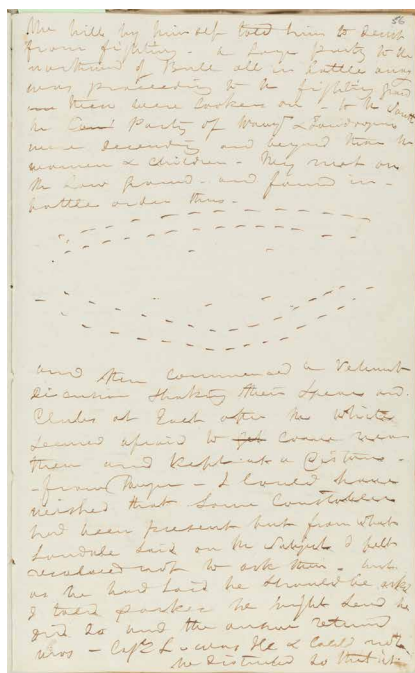 56
the hill by himself told him to desist
from fighting - a large party to the
northward of Bull all in battle array
was proceeding to the fighting ground
then were lookers on - to the South
the Party of Waw &
were descending and beyond them the
women & children - they met on
the low ground - and found in
battle order thus -
and then commenced a vehement
discussion shaking their spears and
Clubs at Each other the whites
seemed afraid to come near
them and kept at a distance -
- from them - I could have
wished that some Constables
had been present but from what
Lonsdale said on the subject I felt
resolved not to ask them - but
as he had said he should be asked
I told parker he might send he
did so and the answer returned
was - Capt L was Ill & could not
be disturbed so that